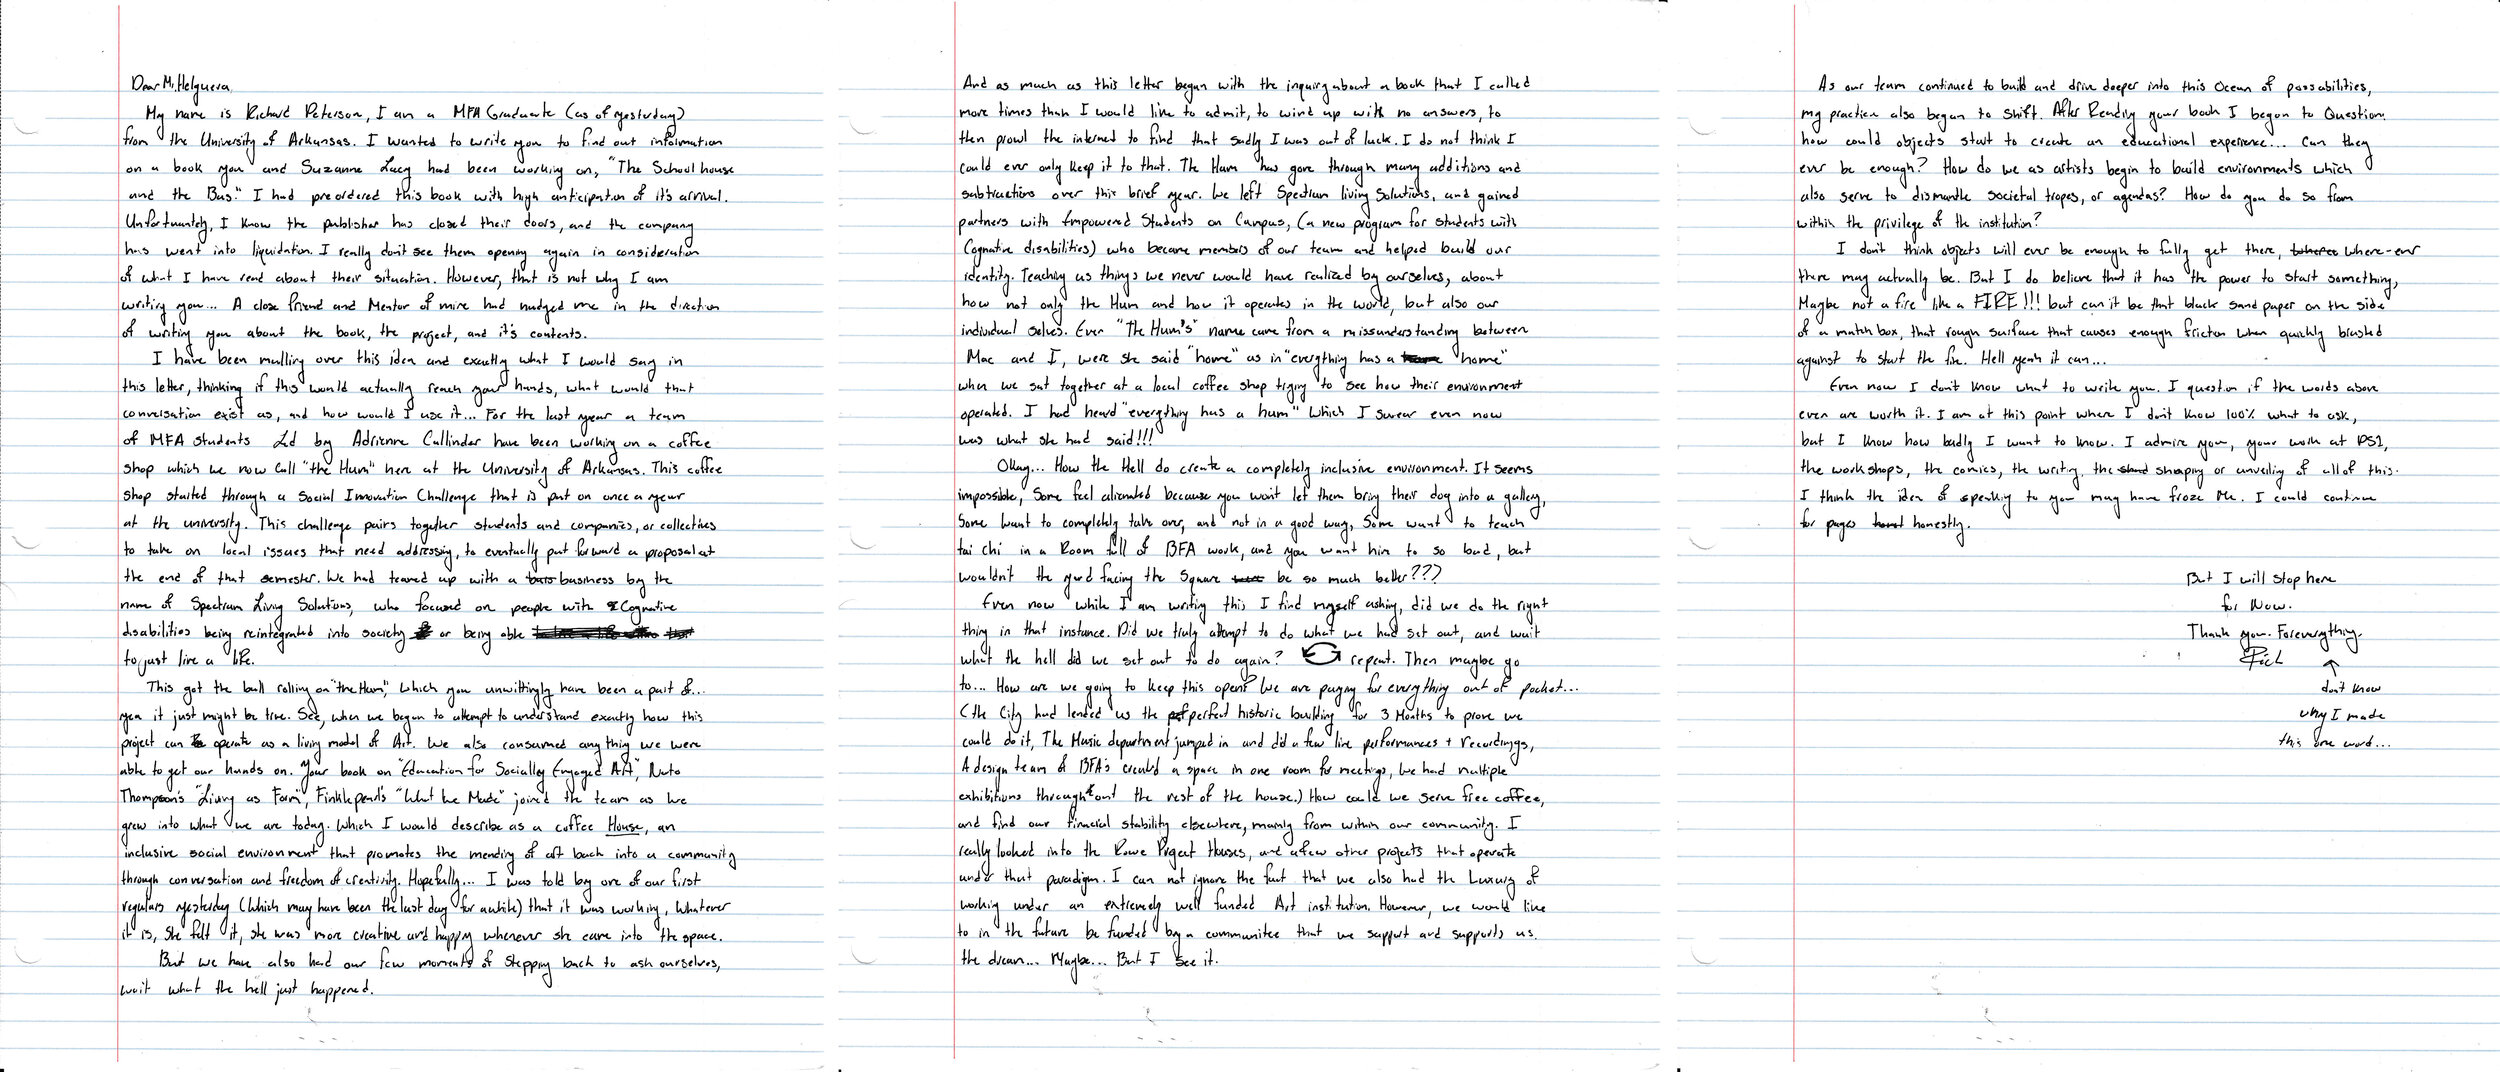 Dear Mr. Helguera,
My name is Richard Peterson, I am a MFA Graduate (as of yesterday)
from the University of Arkansas. I wanted to write you to find out information
on a book you and Suzanne Lacy had been working on, "The Schoolhouse
and the Bus." I had preordered this book with high anticipation of it's arrival.
Unfortunately, I know the publisher has closed their doors, and the company
has went into liquidation. I really don't see them opening again in consideration
of what I have read about their situation. However, that is not why I am
writing you... A close friend and Mentor of mine had nudged me in the direction
of writing you about the book, the project, and it's contents.
I have been mulling over this idea and exactly what I would say in
this letter, thinking if this would actually reach your hands, what would that
conversation exist as, and how would I use it... For the last year a team
of MFA students Led by Adrienne Callander have been working on a coffee
shop which we now call "the Hum" here at the University of Arkansas. This coffee
shop started through a Social Innovation Challenge that is put on once a year
at the university. This challenge pairs together students and companies, or collectives
to take on local issues that need addressing, to eventually put forward a proposal at
the end of that semester. We had teamed up with a business by the
name of Spectrum Living Solutions, who focused on people with Cognative
disabilities being reintegrated into society or being able
to just live a life.
This got the ball rolling on "the Hum", which you unwittingly have been a part of...
yea it just might be true. See, when we began to attempt to understand exactly how this
project can operate as a living model of Art. We also consumed anything we were
able to get our hands on. Your book on "Education for Socially Engaged Art", Nato
Thompson's "Living as Form", Finklepearl's "What We Made" joined the team as we
grew into what we are today. Which I would describe as a coffee House, an
inclusive social environment that promotes the mending of art back into a community
through conversation and freedom of creativity. Hopefully... I was told by one of our first
regulars yesterday (which may have been the last day for awhile) that it was working, whatever
it is, She felt it, she was more creative and happy whenever she came into the space.
But we have also had our few moments of stepping back to ask ourselves,
wait what the hell just happened.
And as much as this letter began with the inquiry about a book that I called
more times than I would like to admit, to wind up with no answers, to
then prowl the internet to find that sadly I was out of luck. I do not think I
could ever only keep it to that. The Hum has gone through many additions and
subtractions over this brief year. We left Spectrum living Solutions, and gained
partners with Empowered Students on Campus, (a new program for students with
Cognative disabilities) who became members of our team and helped build our
identity. Teaching us things we never would have realized by ourselves, about
how not only the Hum and how it operates in the world, but also our
individual selves. Even "The Hum's" name came from a missunderstanding between
Mac and I, were she said "home" as in "everything has a "home"
when we sat together at a local coffee shop trying to see how their environment
operated. I had heard "everything has a hum" which I swear even now
was what she had said!!!
Okay... How the Hell do create a completely inclusive environment. It seems
impossible, Some feel alienated because you won't let them bring their dog into a gallery,
Some want to completely take over, and not in a good way, Some want to teach
tai chi in a Room full of BFA work, and you want him to so bad, but
wouldn't the yard facing the Square be so much better???
Even now while I am writing this I find myself asking, did we do the right
thing in that instance. Did we truly attempt to do what we had set out, and wait
what the hell did we set out to do again? repeat. Then maybe go
to... How are we going to keep this open? We are paying for everything out of pocket...
(the City had lended us the perfect historic building for 3 Months to prove we
could do it, The Music department jumped in and did a few live performances + recordings,
A design team of BFA's created a space in one room for meetings, we had multiple
exhibitions throughout the rest of the house.) How could we serve free coffee,
and find our financial stability elsewhere, mainly from within our community. I
really looked into the Rowe Project Houses, and a few other projects that operate
under that paradigm. I can not ignore the fact that we also had the Luxury of
working under an extremely well funded Art institution. However, we would like
to in the future be funded by a communitee that we support and supports us.
the dream... Maybe... But I see it.
As our team continued to build and drive deeper into this Ocean of possabilities,
my practice also began to shift. After Reading your book I began to Question.
how could objects start to create an educational experience... Can they
ever be enough? How do we as artists begin to build environments which
also serve to dismantle societal tropes, or agendas? How do you do so from
within the privilege of the institution?
I don't think objects will ever be enough to fully get there, where-ever
there may actually be. But I do believe that it has the power to start something,
Maybe not a fire like a FIRE!!! but can it be that black sand paper on the side
of a match box, that rough surface that causes enough friction when quickly brushed
against to start the fire. Hell yeah it can...
Even now I don't know what to write you. I question if the words above
even are worth it. I am at this point where I don't know 100% what to ask,
but I know how badly I want to know. I admire you, your work at PS1,
the workshops, the comics, the writing, the shaping or unveiling of all of this.
I think the idea of speaking to you may have froze Me. I could continue
for pages honestly.
But I will stop here
for Now.
Thank you. Foreverything.
Rich
don't know
why I made
this one word...